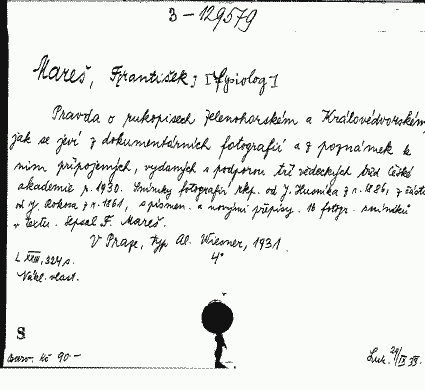 3 - 129579
Mareš, František [fysiolog]
Pravda o rukopisech Zelenohorském a Královédvorském,
jak se jeví z dokumentárních fotografií a z poznámek k
nim připojených, vydaných s podporou tří vědeckých tříd České
akademie r. 1930. Snímky fotografií rkp. od J. z r. 1886, z části
od z r. 1861, s písmen. a novými přepisy. 16 fotogr. snímků
v textu. sepsal F. Mareš.
V Praze, typ. Al. Wiesner, 1931.
L XXIII, 324 s. 4°
Nákl. vlast.
S
Kč 90 -